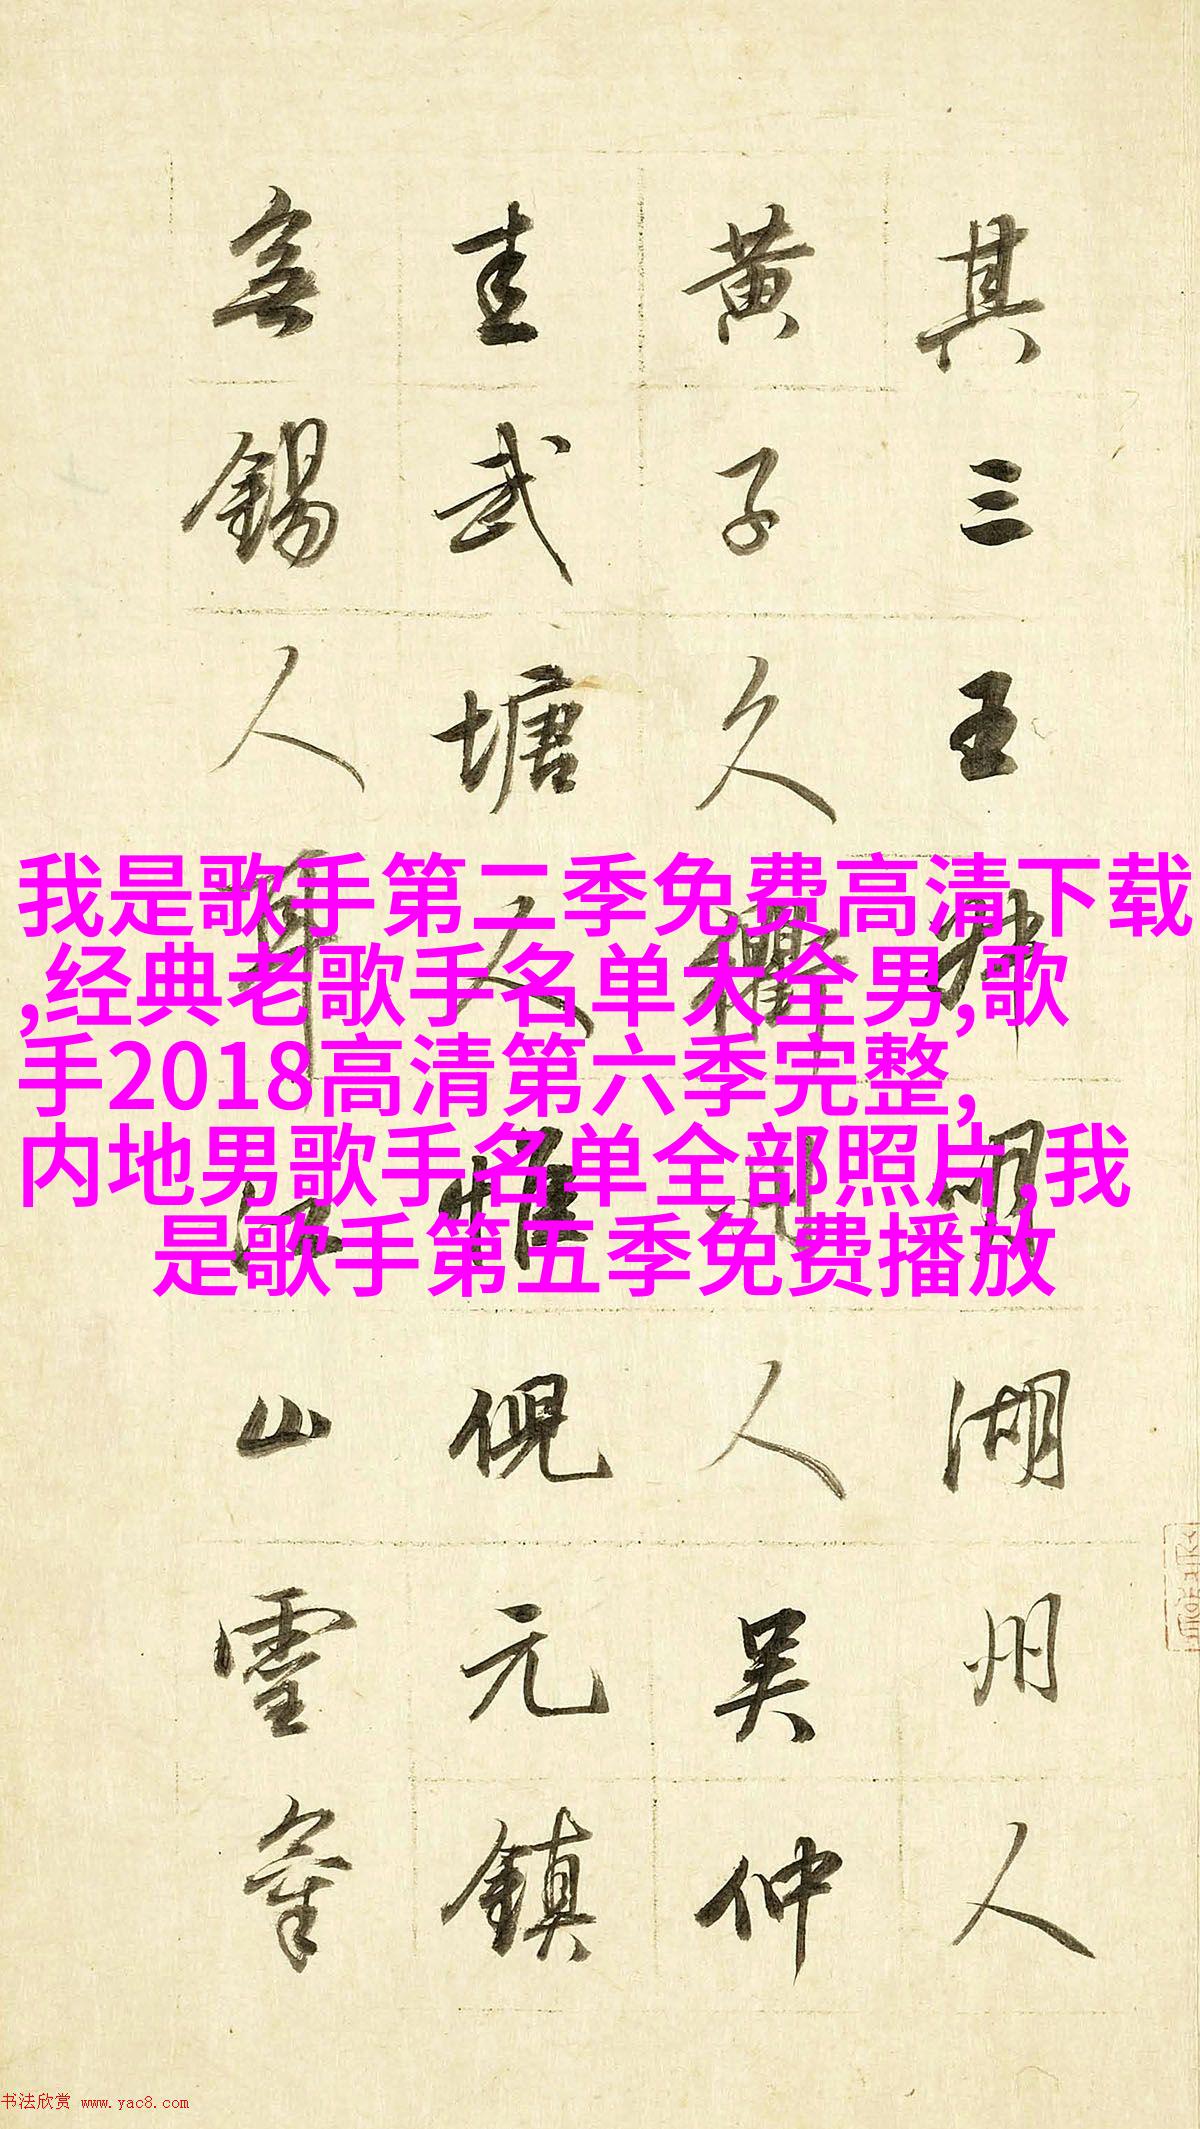 我是歌手第二季免费高清下载
,经典老歌手名单大全男,歌
手2018高清第六季完整,
内地男歌手名单全部照片,我
是歌手第五季免费播放
其三王叔明湖州人
黄子久衢州人吴仲
圭武塘人惟倪元鎮
無錫人耳江山靈氣
书法欣赏 www.yac8.com